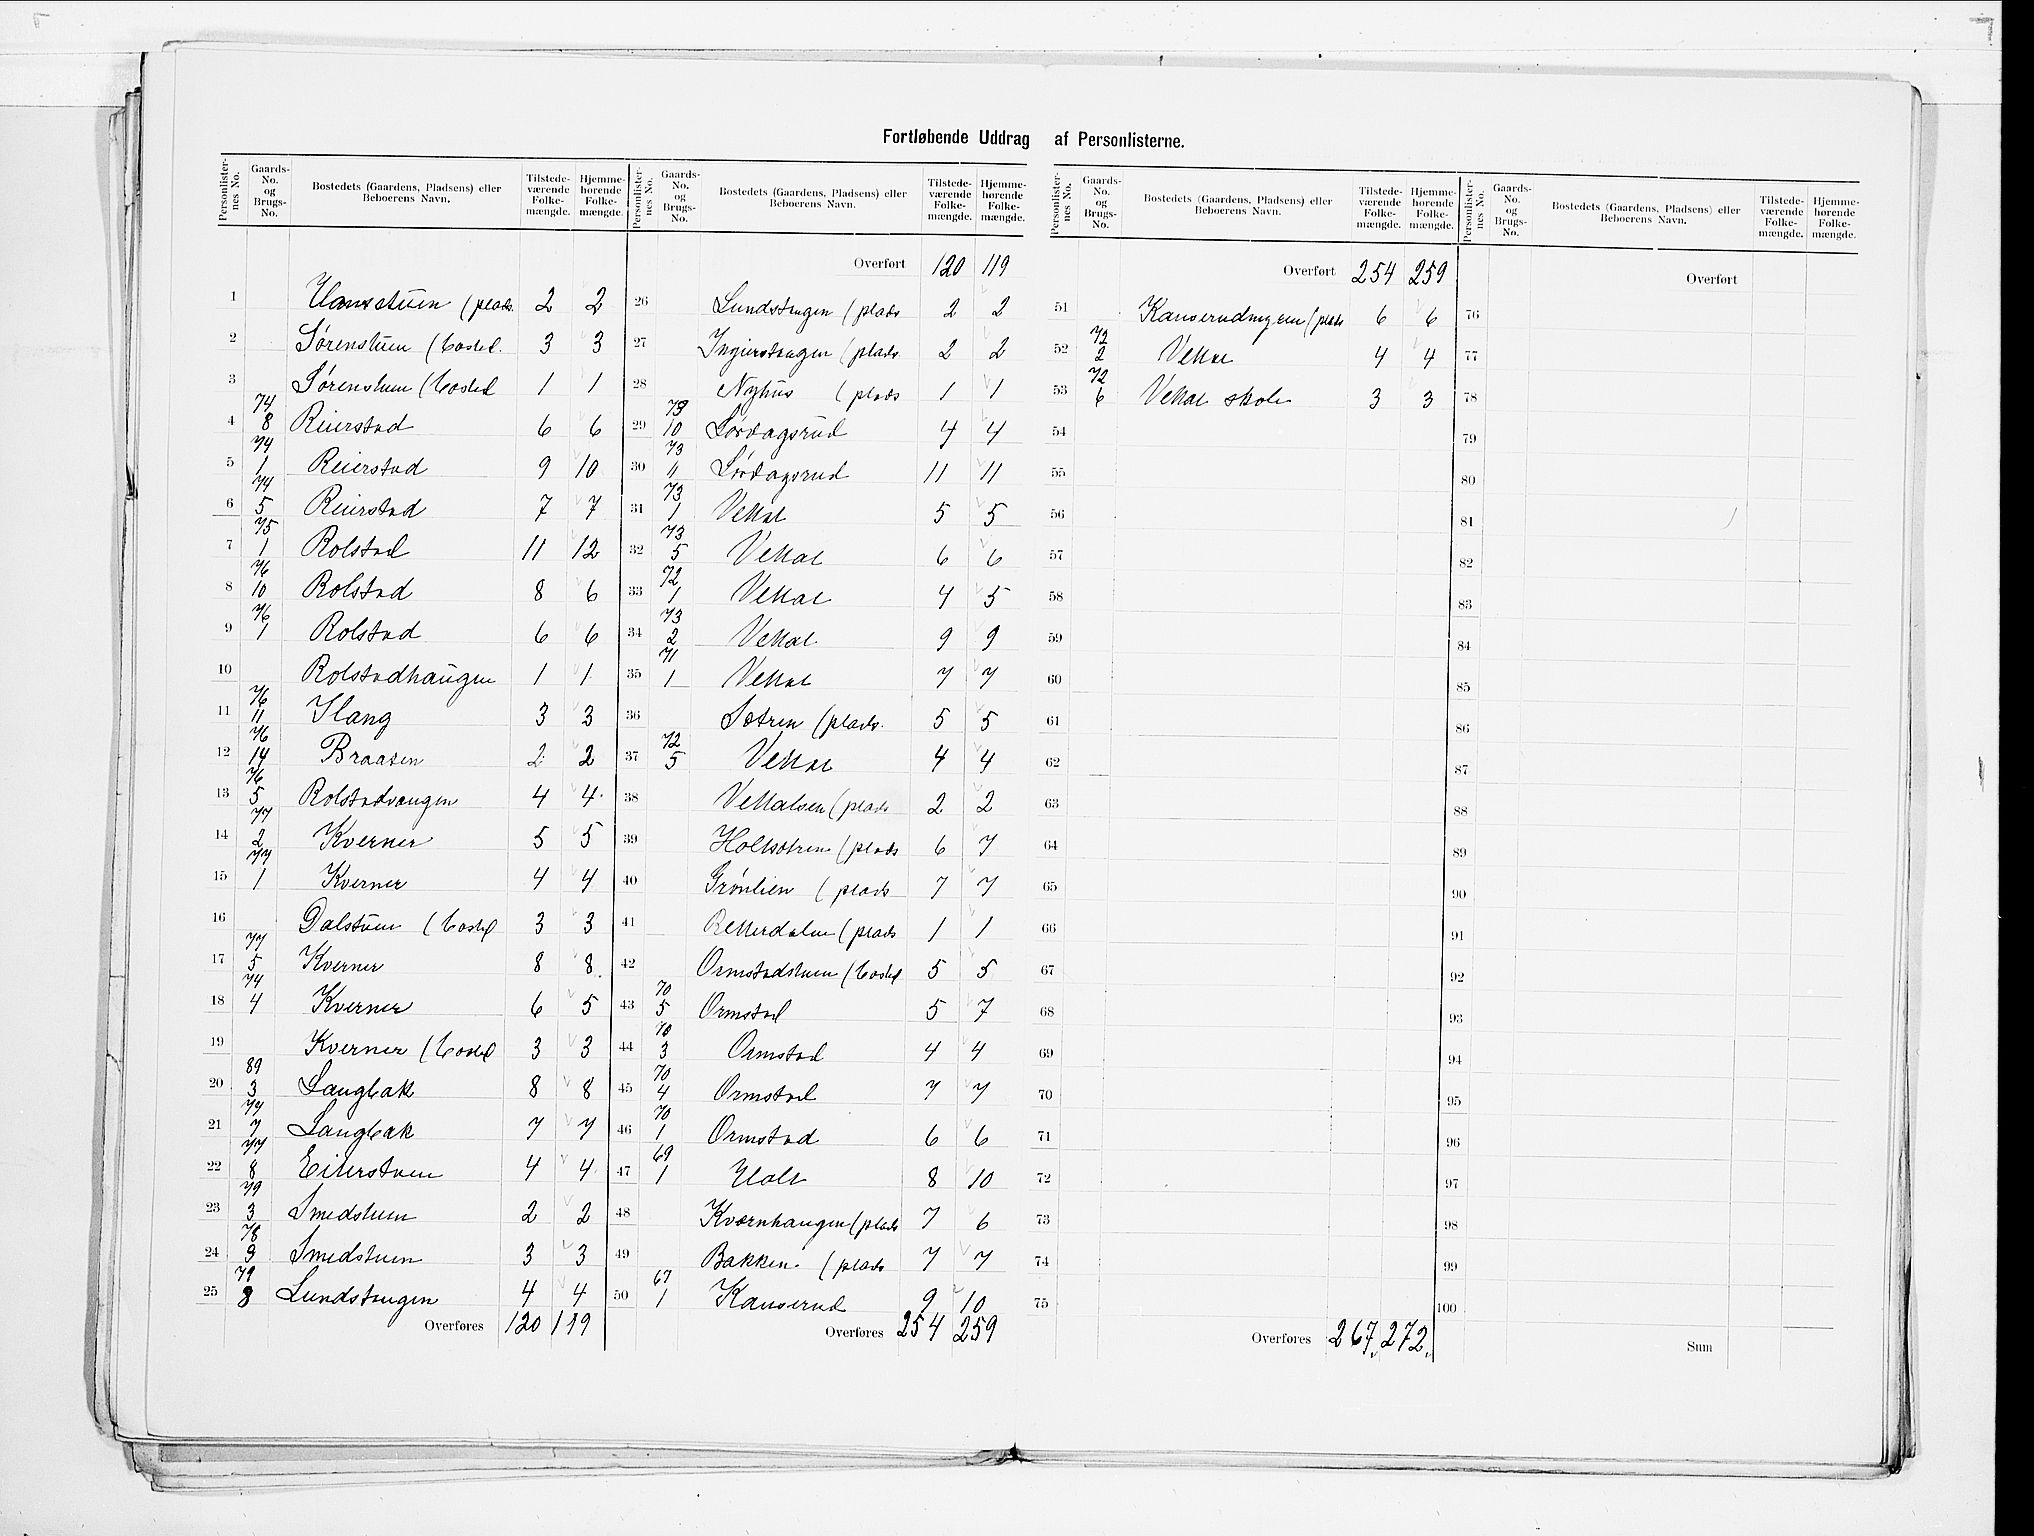 Fortløbende Uddrag af Personlisterne.
Personlister-nes No. Gaards-No. og Brugs-No. Bostedets (Gaardens, Pladsens) eller Beboerens Navn. Tilstede-værende Folke-mængde. Hjemme-hørende Folke-mængde.
1 (plads 2 2
2 Sørenstuen (bosted. 3 3
3 Sørenstuen (bosted 1 1
4 74 8 Reierstad 6 6
5 74 1 Reierstad 9 10
6 74 5 Reierstad 7 7
7 75 1 Rolstad 11 12
8 76 10 Rolstad 8 6
9 76 1 Rolstad 6 6
10 Rolstadhaugen 1 1
11 76 11 Ilang 3 3
12 76 14 Braaten 2 2
13 76 5 Rolstadvangen 4 4
14 77 2 Kverner 5 5
15 77 1 Kverner 4 4
16 Dalstuen (bosted 3 3
17 77 5 Kverner 8 8
18 74 4 Kverner 6 5
19 Kverner (bosted 3 3
20 89 3 Langbak 8 8
21 77 7 Langbak 7 7
22 77 8 Eilerstuen 4 4
23 79 3 Smedstuen 2 2
24 78 9 Smedstuen 3 3
25 79 8 Lundstangen 4 4
Overføres 120 119
Personlister-nes No. Gaards-No. og Brugs-No. Bostedets (Gaardens, Pladsens) eller Beboerens Navn. Tilstede-værende Folke-mængde. Hjemme-hørende Folke-mængde.
Overført 120 119
26 Lundstangen (plads 2 2
27 Ingierstangen (plads 2 2
28 Nyhus (plads 1 1
29 73 10 Lørdagsrud 4 4
30 73 11 Lørdagsrud 11 11
31 73 1 Vekal 5 5
32 73 5 Vekal 6 6
33 72 1 Vekal 4 5
34 73 2 Vekal 9 9
35 71 1 Vekal 7 7
36 Sætren (plads. 5 5
37 72 5 Vekal 4 4
38 (plads 2 2
39 Holtsætren (plads 6 7
40 Grønlien (plads 7 7
41 (plads 1 1
42 Ormstadstuen (bosted 5 5
43 70 5 Ormstad 5 7
44 70 3 Ormstad 4 4
45 70 4 Ormstad 7 7
46 70 1 Ormstad 6 6
47 69 1 Holt 8 10
48 Kværnhaugen (plads 7 6
49 Bakken. (plads 7 7
50 67 1 Kanserud 9 10
Overføres 254 259
Personlister-nes No. Gaards-No. og Brugs-No. Bostedets (Gaardens, Pladsens) eller Beboerens Navn. Tilstede-værende Folke-mængde. Hjemme-hørende Folke-mængde.
Overført 254 259
51 Kanserudmyren (plads 6 6
52 72 2 Vekal 4 4
53 72 6 Vekal skole 3 3
54
55
56
57
58
59
60
61
62
63
64
65
66
67
68
69
70
71
72
73
74
75
Overføres 267 272
Personlister-nes No. Gaards-No. og Brugs-No. Bostedets (Gaardens, Pladsens) eller Beboerens Navn. Tilstede-værende Folke-mængde. Hjemme-hørende Folke-mængde.
Overført
76
77
78
79
80
81
82
83
84
85
86
87
88
89
90
91
92
93
94
95
96
97
98
99
100
Sum